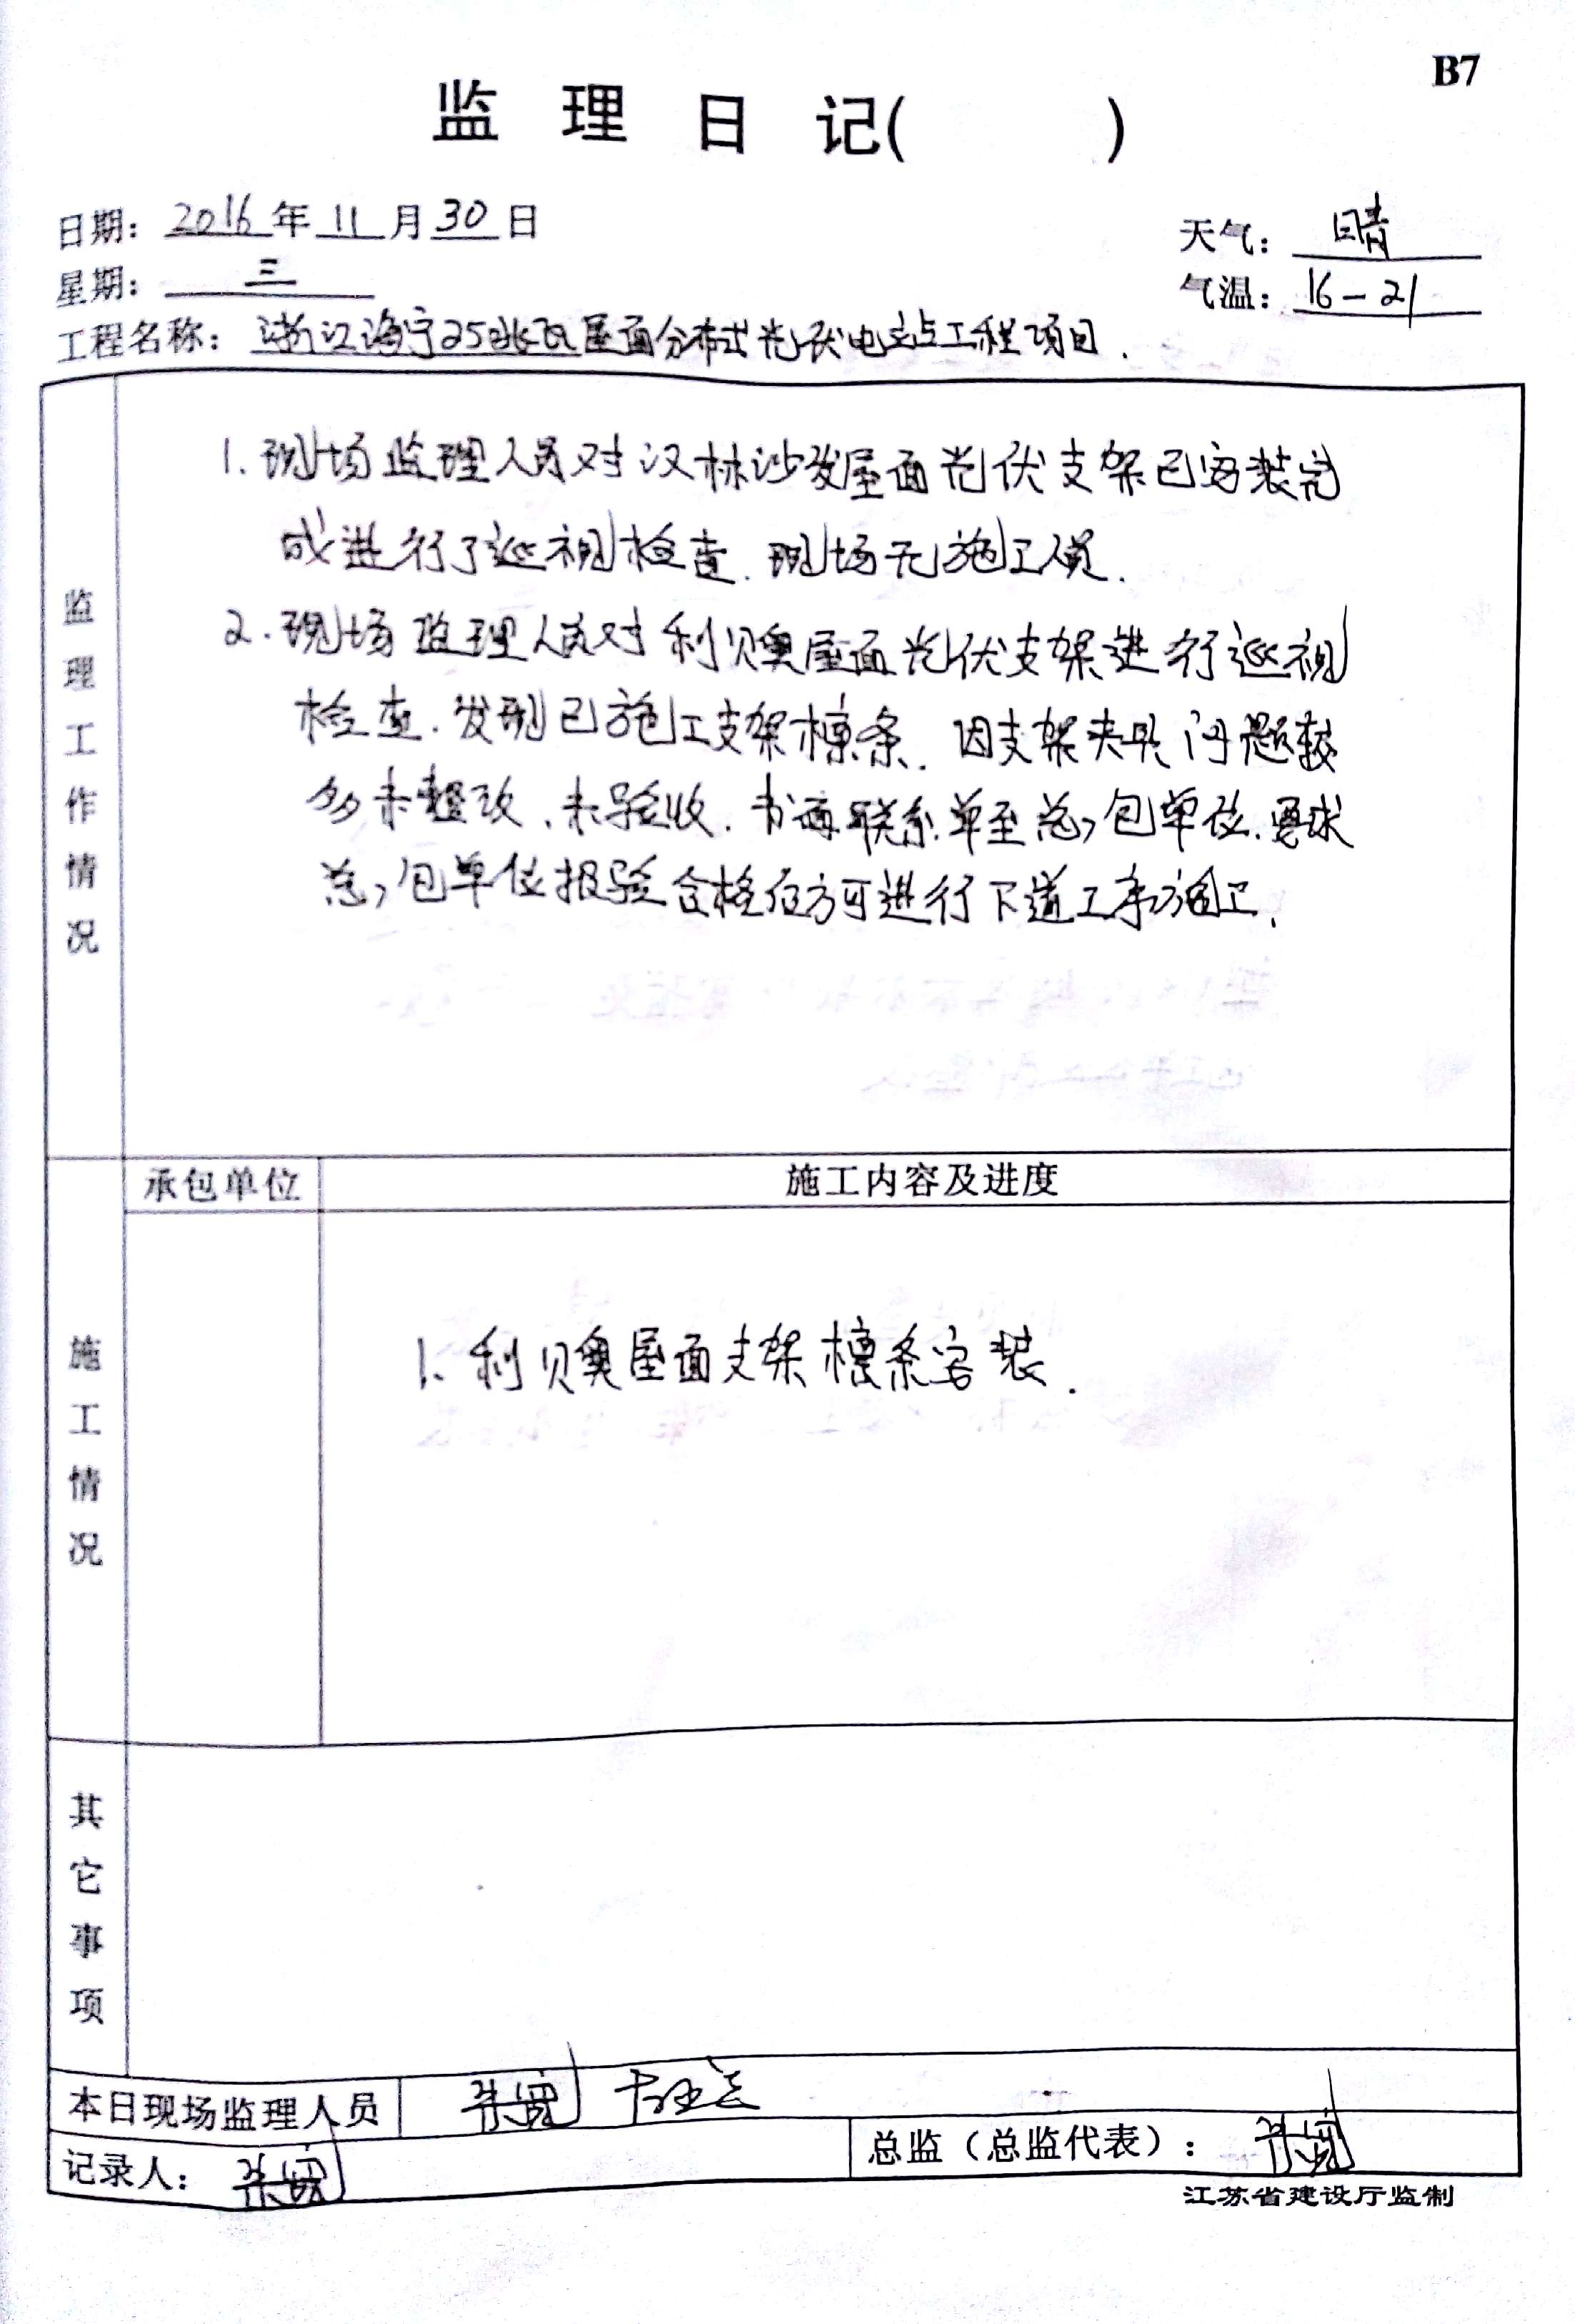 B7
监 理 日 记(　　　)
日期：2016年11月30日
天气：晴
星期：三
气温：16-21
工程名称：浙江海宁25兆瓦屋面分布式光伏电站工程项目.
监理工作情况
1. 现场监理人员对汉林沙发屋面光伏支架已安装完
成进行了巡视检查. 现场无施工人员.
2. 现场监理人员对利贝奥屋面光伏支架进行巡视
检查. 发现已施工支架檩条. 因支架夹具问题较
多未整改、未验收. 书面联系单至总包单位. 要求
总包单位报验合格后方可进行下道工序施工.
承包单位
施工内容及进度
施工情况
1. 利贝奥屋面支架檩条安装.
其它事项
本日现场监理人员
记录人：
总监（总监代表）：
江苏省建设厅监制